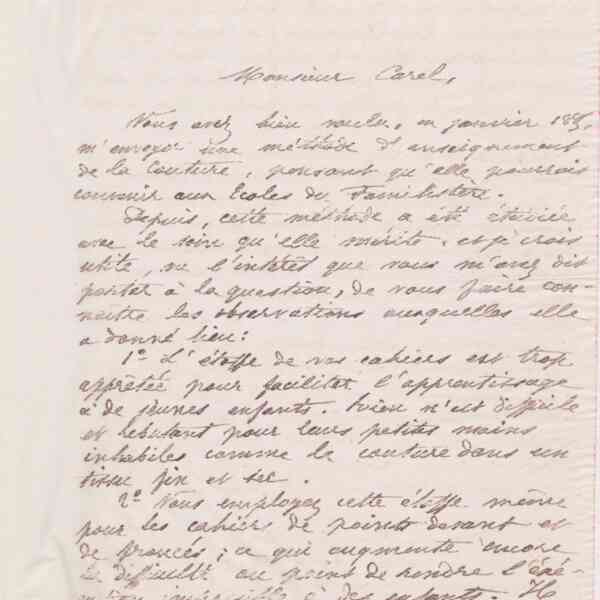 Monsieur Carel,
Vous avez bien voulu, en janvier
m'envoyer une méthode d'enseignement
de la Couture, pensant qu'elle pourrait
convenir aux Ecoles du Familistère.
Depuis, cette méthode a été étudiée
avec le soin qu'elle mérite, et je crois
utile, vu l'intérêt que vous m'avez dit
porter à la question, de vous faire con-
naître les observations auxquelles elle
a donné lieu:
1º L'étoffe de vos cahiers est trop
apprêtée pour faciliter l'apprentissage
à de jeunes enfants. Rien n'est difficile
et rebutant pour leurs petites mains
inhabiles comme la couture dans un
tissu fin et sec.
2º Vous employez cette étoffe même
pour les cahiers de points devant et
de froncés; ce qui augmente encore
la difficulté au point de rendre l'exé-
à des enfants. Il